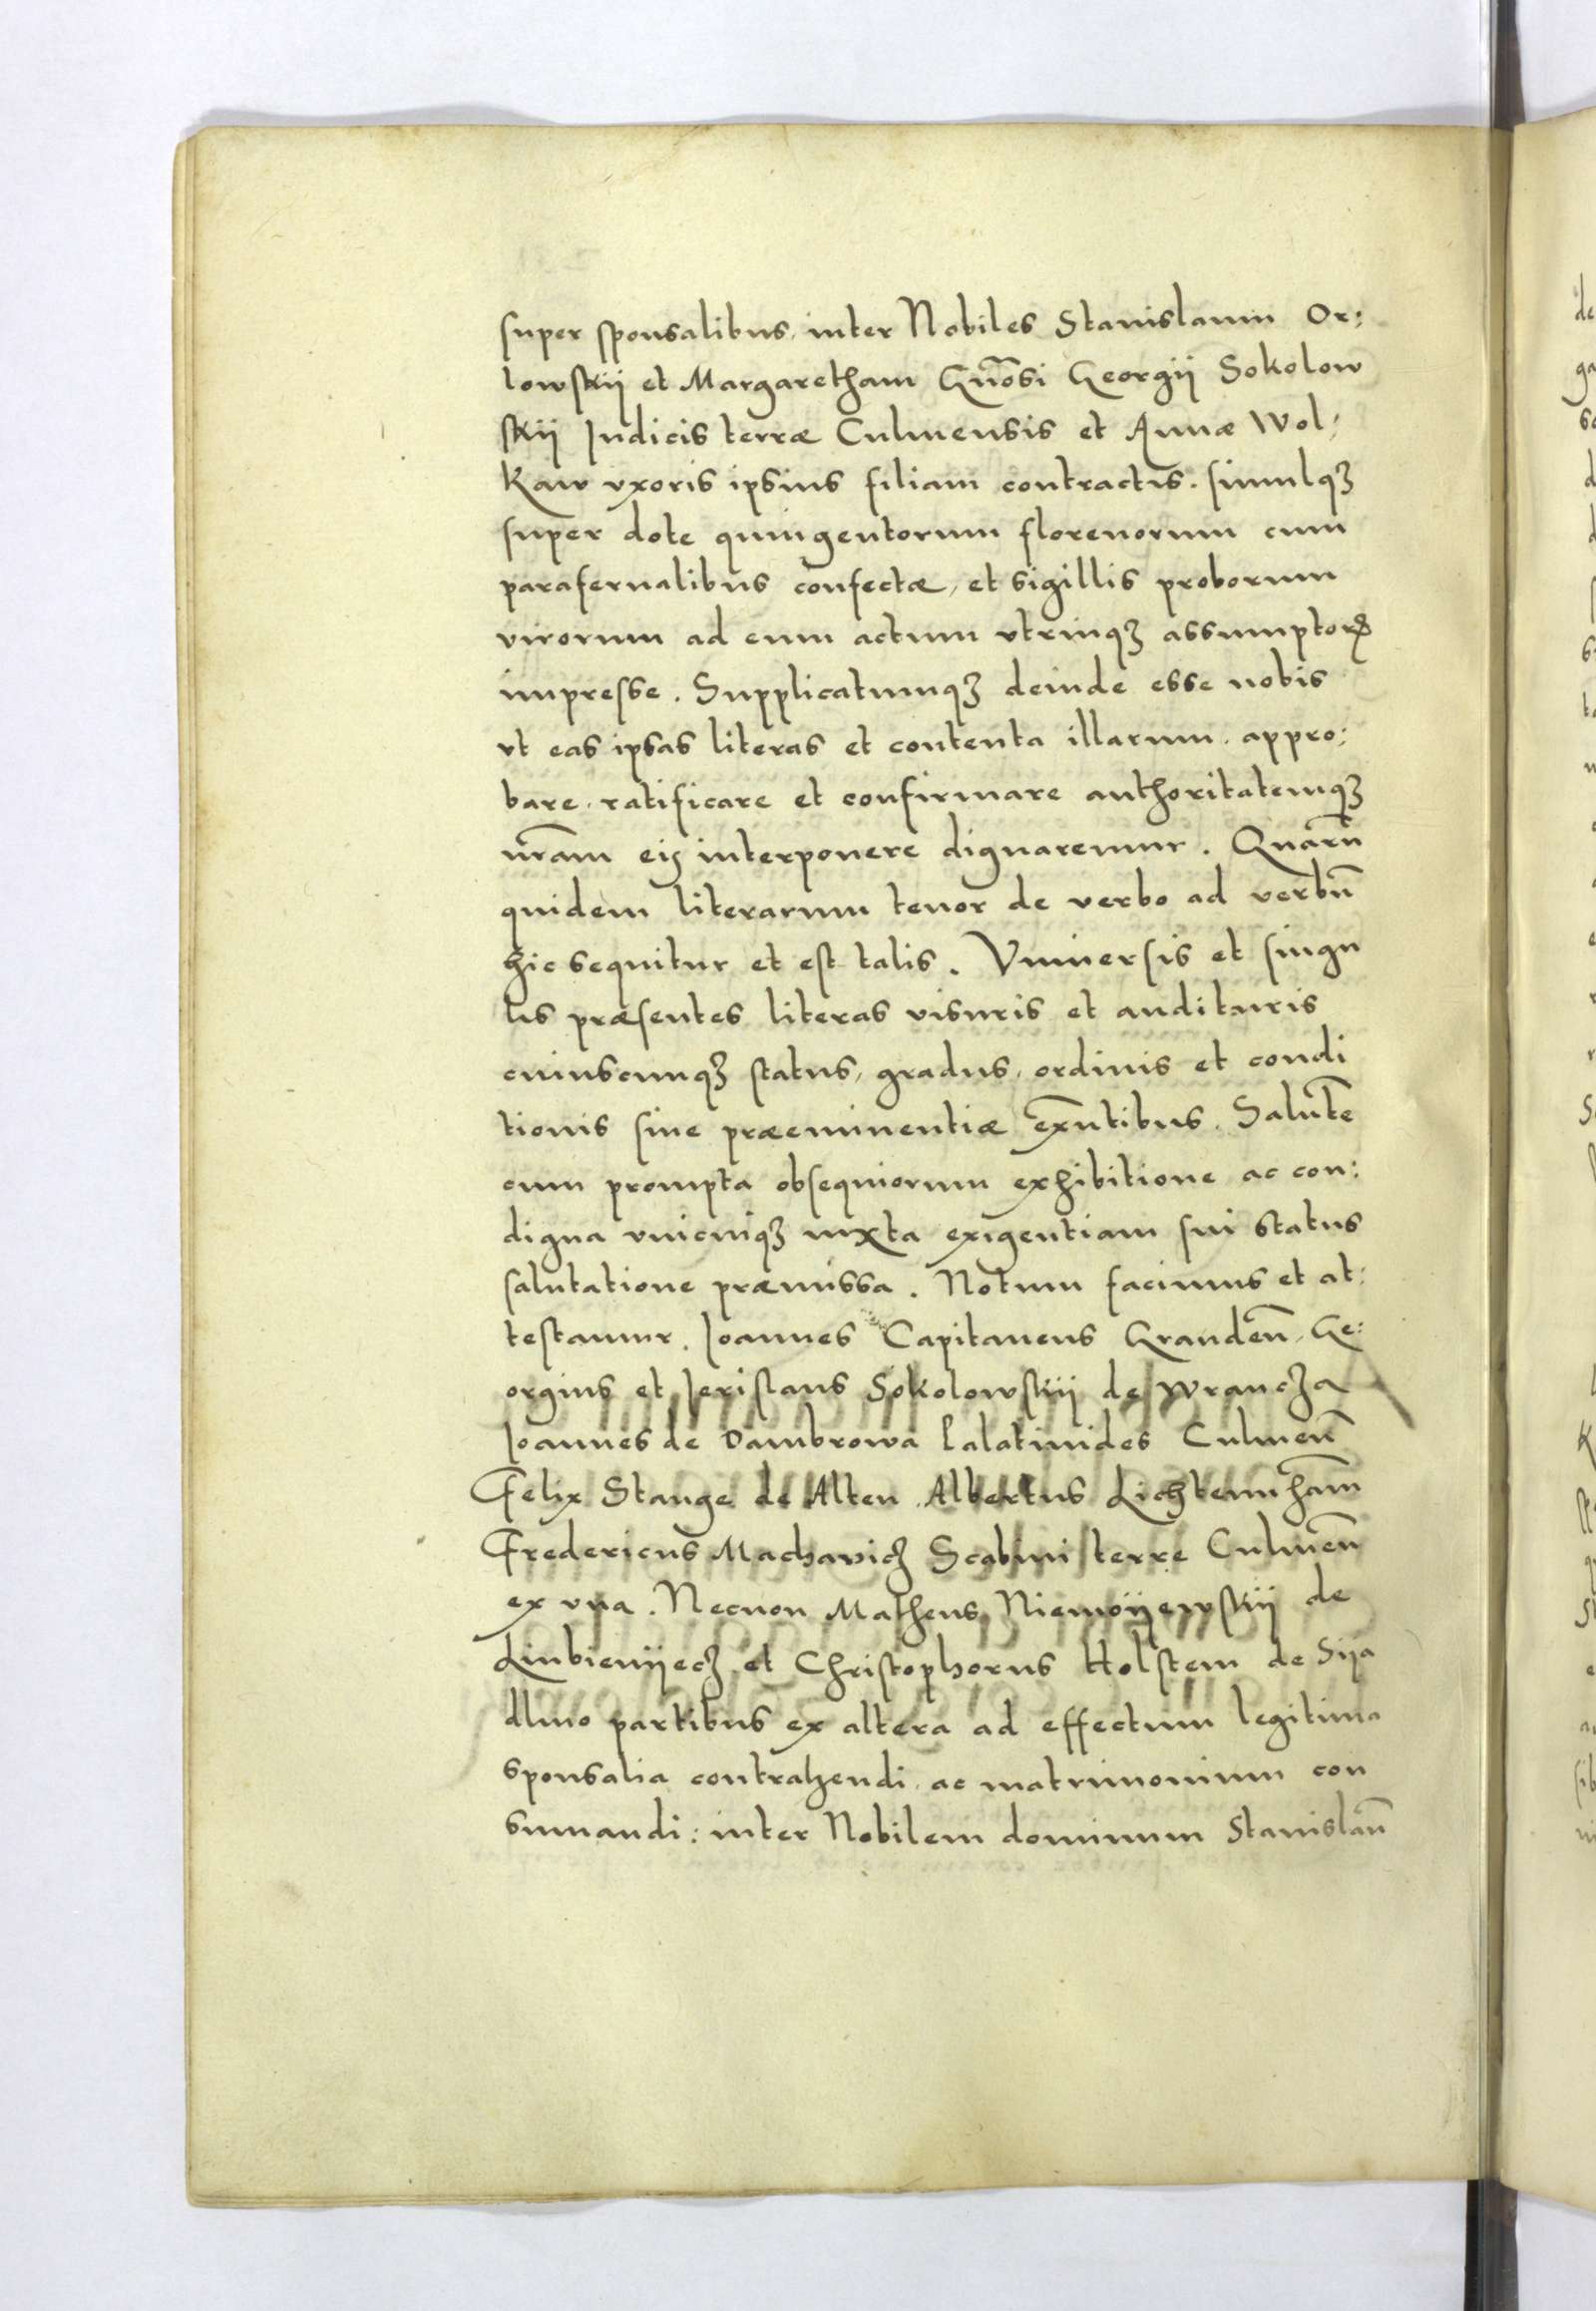 super sponsalibus, inter Nobiles Stanislaum Or:
lowskij et Margaretham Gn̄osi Georgij Sokolow
skij Judicis terræ Culmensis et Annæ Wol:
kaw vxoris ipsius filiam contractis. simulqȝ
super dote quingentorum florenorum cum
parafernalibus confectæ, et sigillis proborum
virorum ad eum actum vtrinqȝ assumptorꝝ
impresse. Supplicatumqȝ deinde esse nobis
vt eas ipsas literas et contenta illarum, appro:
bare, ratificare et confirmare authoritatemqȝ
nr̄am eis interponere dignaremur. Quarū
quidem literarum tenor de verbo ad verbū
hic sequitur et est talis. Vniuersis et singu
lis præsentes literas visuris et audituris
cuiuscunqȝ status, gradus, ordinis et condi
tionis siue præeminentiæ exn̄tibus. Salutē
cum prompta obsequiorum exhibitione ac con:
digna vnicuiqȝ iuxta exigentiam sui status
salutatione præmissa. Notum facimus et at:
testamur. Joannes Capitaneus Grandeñ, Ge:
orgius et Jerislaus Sokolowskij de Wrancza
Joannes de Dambrowa Palatinides Culmeñ
Felix Stange de Alten, Albertus Lichtenn̄ham
Fredericus Machavicz Scabini terre Culmeñ
ex vna. Necnon Matheus Niemoijewskij de
Liubienijecz et Christophorus Holstem de Sija
dlno partibus ex altera ad effectum legitima
sponsalia contrahendi, ac matrimonium con
sumandi: inter Nobilem dominum Stanislaū